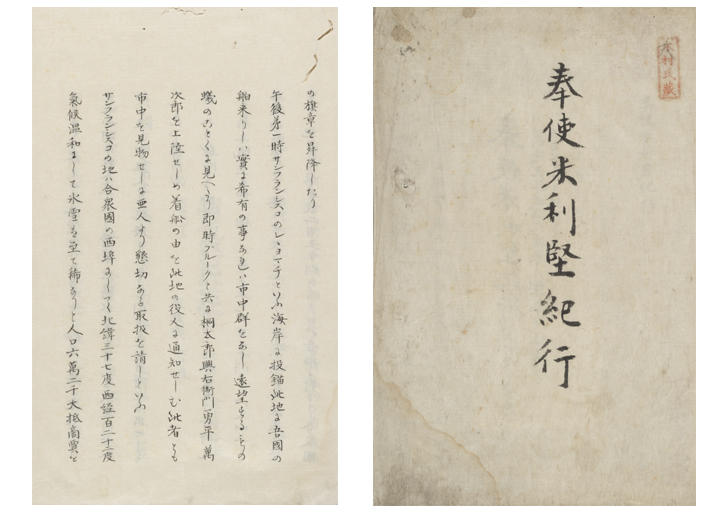 奉使米利堅紀行
木村氏蔵
の旗章を昇降したり
午後第一時サンフランシスコのレーヨマチといふ海岸に投錨此地に吾國の
舶来りしハ實に希有の事なれハ市中群をなし遠望するもの
蟻のことくに見へたり即時ブルークと共に桐太郎與右衛門勇平萬
次郎を上陸せしめ着船の由を此地の役人に通知せしむ此者とも
市中を見物せしに亜人より懇切なる取扱を請しといふ
サンフランシスコの地ハ合衆國の西埠にして北緯三十七度西経百二十二度
氣候温和にして氷雪も至て稀なりと人口六萬二千大抵商賈を